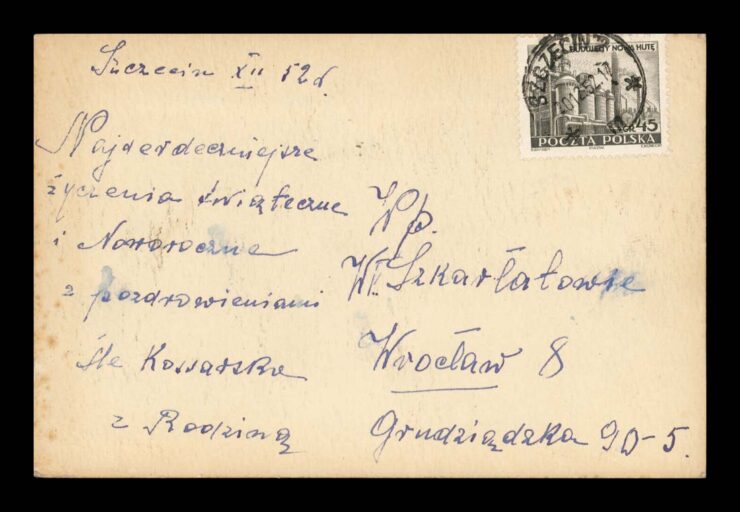 Szczecin XII 52 r.
Najserdeczniejsze
życzenia świąteczne
i Noworoczne
z pozdrowieniami
śle Kossarska
z Rodziną
Wp.
Wł. Szkarłatowie
Wrocław 8
Grudziądzka 90-5.
SZCZECIN
BUDUJEMY NOWĄ HUTĘ
GR 45
POCZTA POLSKA